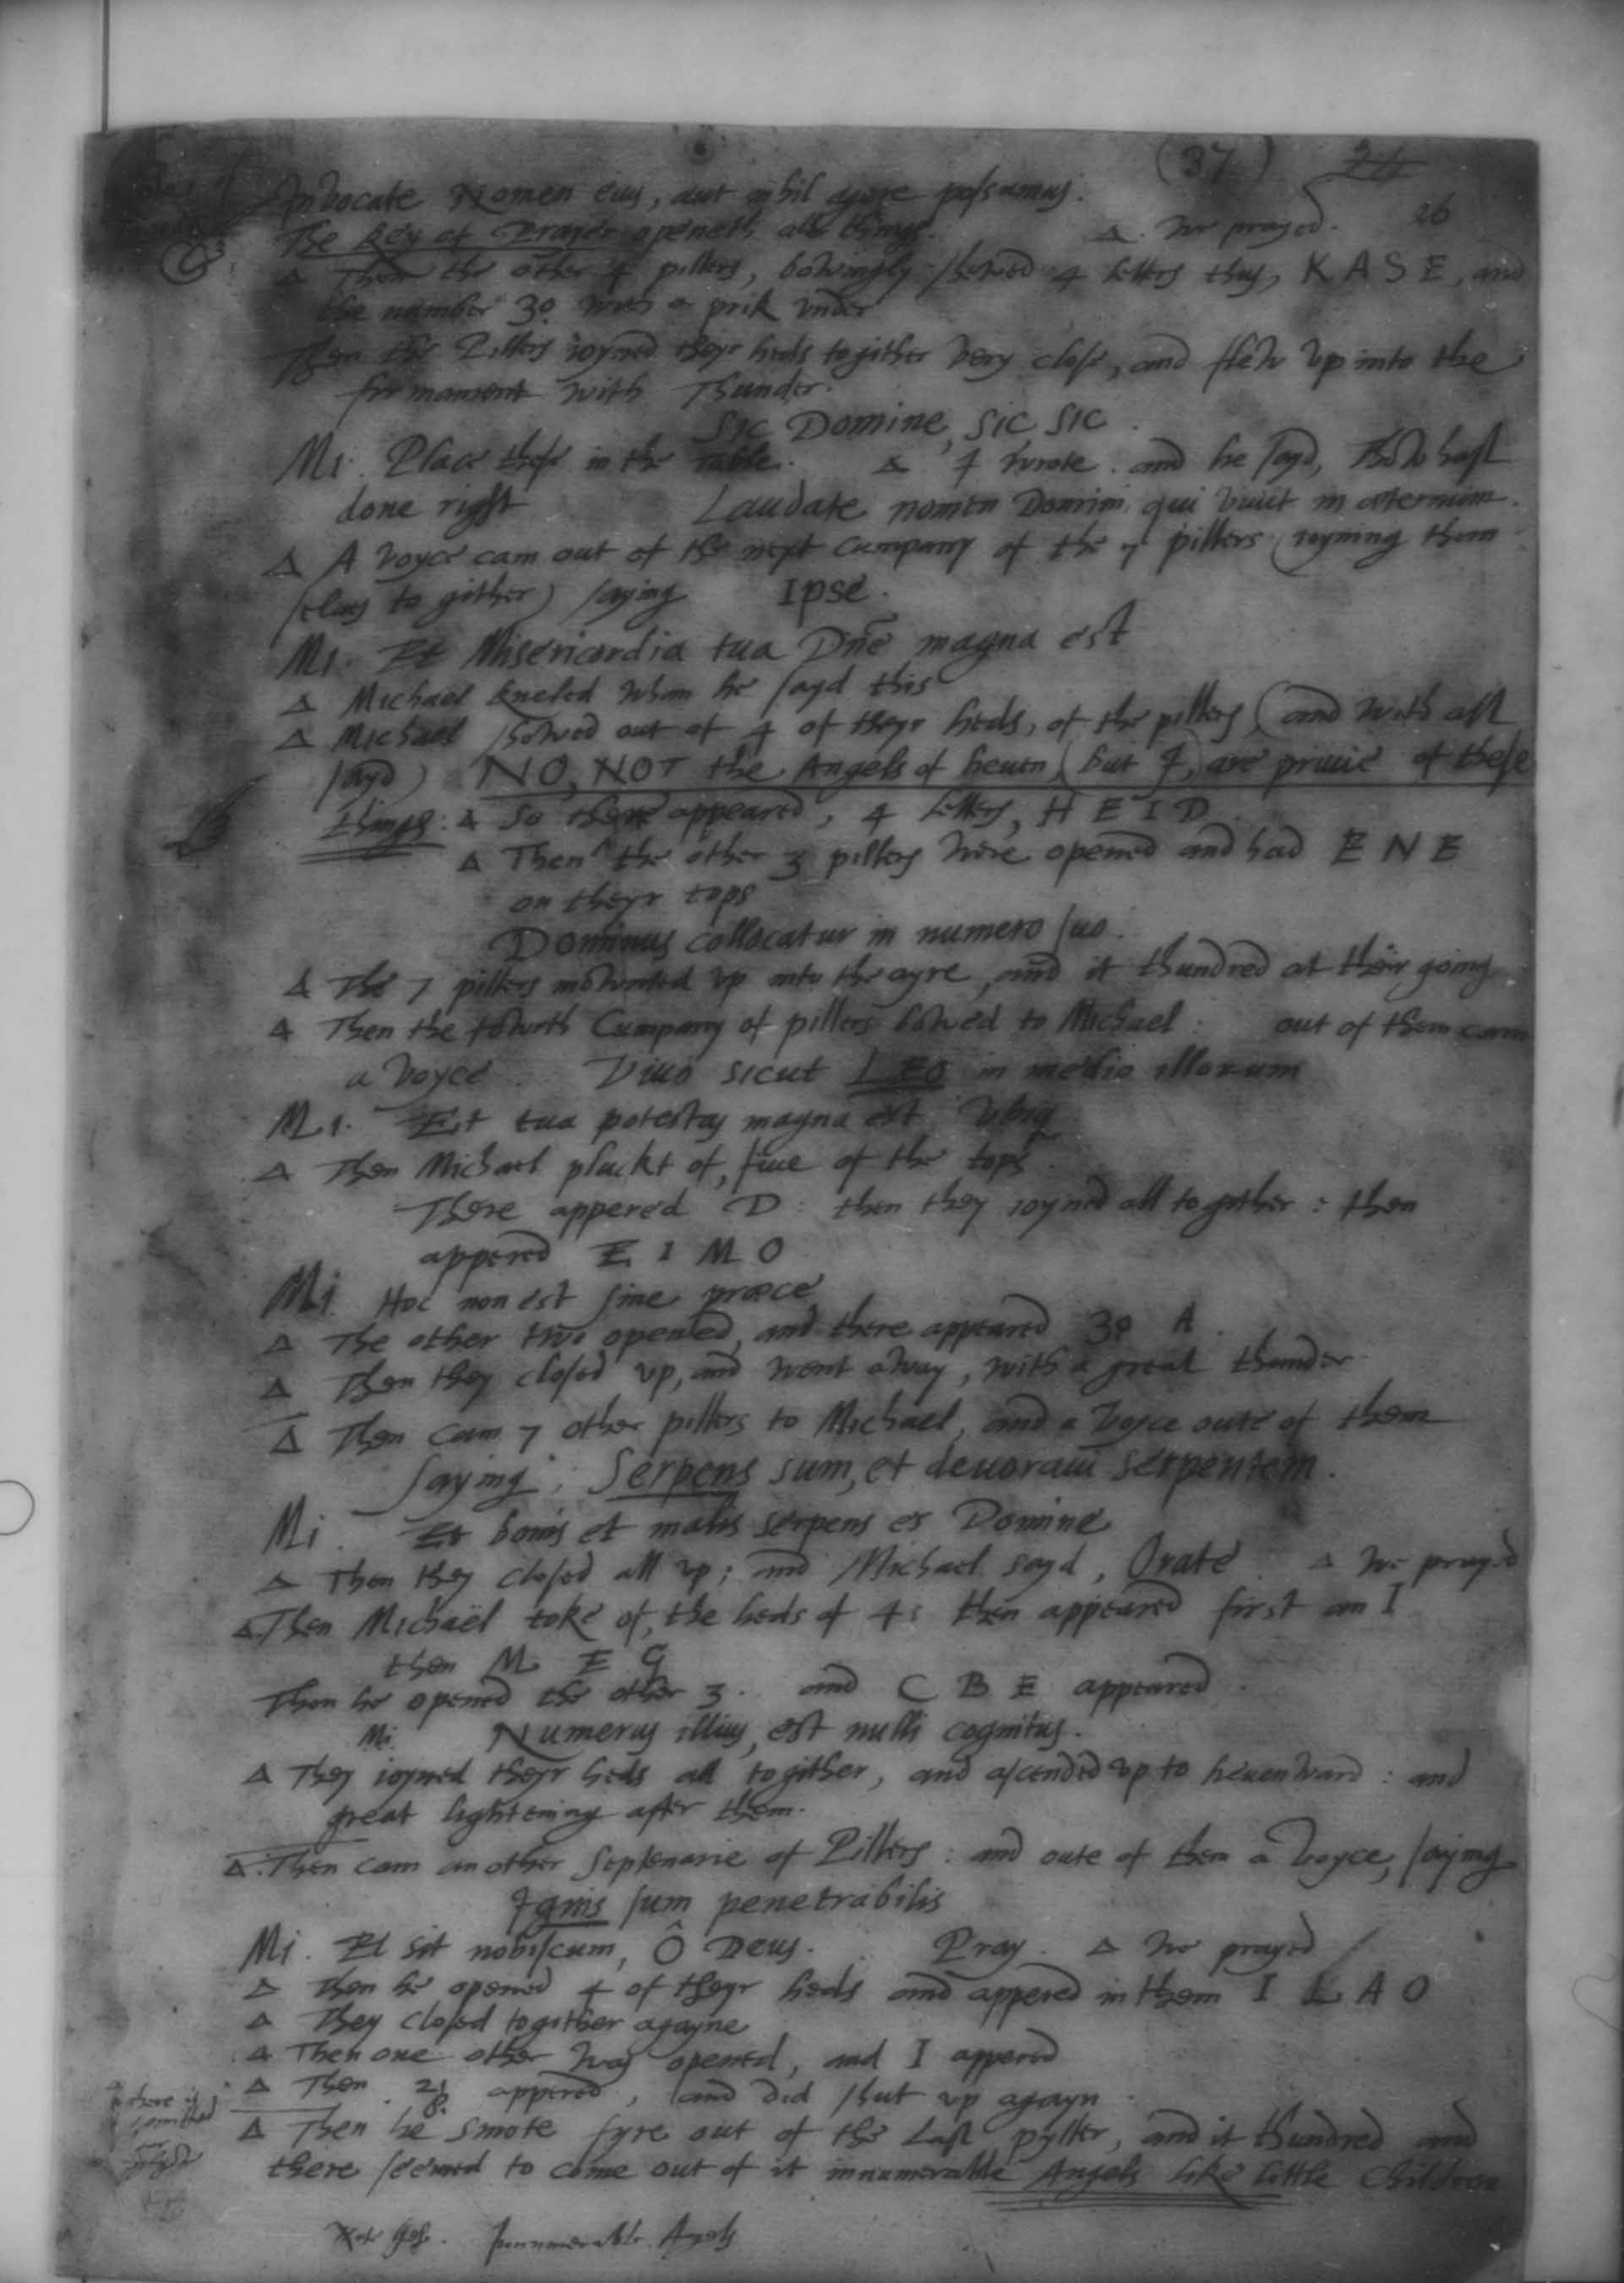 (37) 24
26
Invocate Nomen eius, aut nihil agere possumus.
The key of Prayer openeth all things. Δ. We prayed.
Δ Then the other 4 pillers, bowingly shewed 4 letters thus, K A S E, and
the number 30 with a prik vnder
Then the Pillers ioyned theyr heds togither very close, and flew vp into the
firmament with Thunder.
Sic Domine, Sic, Sic.
Mi. Place these in the Table. Δ I wrote. and he sayd, Thow hast
done right Laudate nomen Domini, qui viuit in æternum.
Δ A voyce cam out of the next Cumpany of the 7 pillers (ioyning them
selues to gither) saying Ipse.
Mi. Et Misericordia tua Dñe magna est
Δ Michael kneled whan he sayd this
Δ Michael shewed out of 4 of theyr heds, of the pillers, (and with all
sayd) NO, NOT the Angels of heuen, (but I,) are priuie of these
things: Δ So there appeared, 4 letters, H E I D
Δ Then the other 3 pillers were opened and had E N E
on theyr tops
Dominus collocatur in numero suo.
Δ The 7 pillers mownted vp into the ayre, and it thundred at their going
Δ Then the fowrth Cumpany of pillers bowed to Michael: out of them cam
a voyce. Viuo sicut LEO in medio illorum
Mi. Et tua potestas magna est vbiq
Δ Then Michael pluckt of, fiue of the tops
There appered D: then they ioyned all togither: then
appered E I M O
Mi. Hoc non est sine præce
Δ The other two opened, and there appeared 30 A.
Δ Then they closed vp, and went away, with a great thunder.
Δ Then cam 7 other pillers to Michael, and a voyce oute of them
saying; Serpens sum, et deuoraui serpentem.
Mi. Et bonis et malis serpens es Domine
Δ Then they closed all vp; and Michael sayd, Orate Δ We prayed
Δ Then Michaël toke of, the heds of 4: then appeared first an I
then M E G
Then he opened the other 3. and C B E appeared.
Mi. Numerus illius, est nulli cognitus.
Δ They ioyned theyr heds all togither, and ascended vp to heuenward: and
great lightening after them.
Δ. Then cam an other Septenarie of Pillers: and oute of them a Voyce, saying
Ignis sum penetrabilis
Mi. Et sit nobiscum, Ô Deus. Pray. Δ We prayed
Δ Then he opened 4 of theyr heds and appered in them I L A O
Δ They closed togither agayne
Δ Then one other was opened, and I appered
Δ Then. 21/8. appered, and did shut vp agayn.
Δ Then he smote fyre out of the Last pyller, and it thundred and
there seemed to come out of it innumerable Angels like little Children
there is
Innumerable Angels